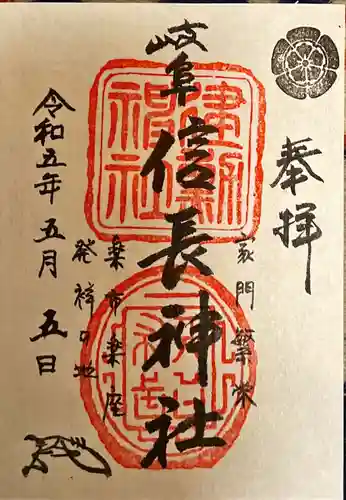 奉拝
家門繁栄
岐阜信長神社
楽市楽座
発祥の地
令和五年五月五日
建勲
神社